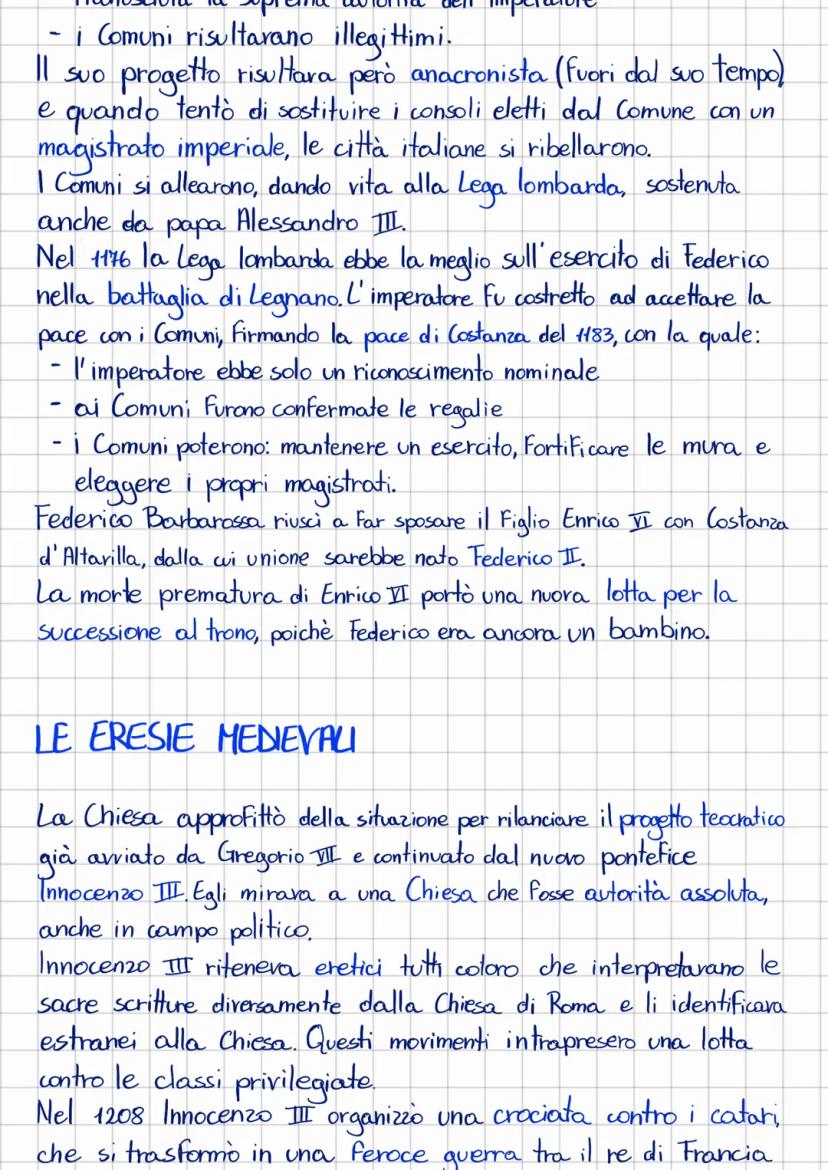 riconosciuta la suprema autorità dell'imperatore
- i Comuni risultavano illegittimi.
Il suo progetto risultava però anacronista (fuori dal suo tempo)
e quando tentò di sostituire i consoli eletti dal Comune con un
magistrato imperiale, le città italiane si ribellarono.
I Comuni si allearono, dando vita alla Lega lombarda, sostenuta
anche da papa Alessandro III.
Nel 1176 la Lega lombarda ebbe la meglio sull'esercito di Federico
nella battaglia di Legnano. L'imperatore fu costretto ad accettare la
pace con i Comuni, firmando la pace di Costanza del 1183, con la quale:
- l'imperatore ebbe solo un riconoscimento nominale
- ai Comuni furono confermate le regalie
- i Comuni poterono: mantenere un esercito, fortificare le mura e
eleggere i propri magistrati.
Federico Barbarossa riuscì a far sposare il figlio Enrico VI con Costanza
d'Altavilla, dalla cui unione sarebbe nato Federico II.
La morte prematura di Enrico VI portò una nuova lotta per la
successione al trono, poichè Federico era ancora un bambino.
LE ERESIE MEDIEVALI
La Chiesa approfittò della situazione per rilanciare il progetto teocratico
già avviato da Gregorio VII e continuato dal nuovo pontefice
Innocenzo III. Egli mirava a una Chiesa che fosse autorità assoluta,
anche in campo politico.
Innocenzo III riteneva eretici tutti coloro che interpretavano le
sacre scritture diversamente dalla Chiesa di Roma e li identificava
estranei alla Chiesa. Questi movimenti intrapresero una lotta
contro le classi privilegiate.
Nel 1208 Innocenzo III organizzò una crociata contro i catari,
che si trasformò in una feroce guerra tra il re di Francia